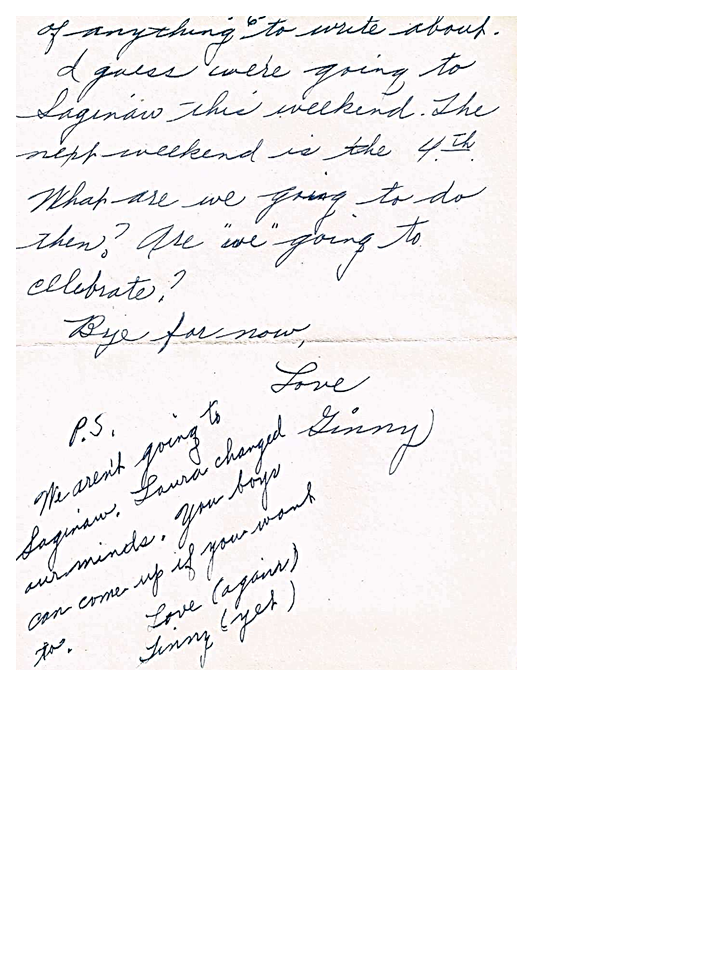 of anything to write about.
I guess we're going to
Saginaw this weekend. The
next weekend is the 4th.
What are we going to do
then? Are "we" going to
celebrate?
Bye for now,
Love
Ginny
P.S.
We aren't going to
Saginaw. Laura changed
our minds. You boys
can come up if you want
to.
Love (again)
Ginny (yet)